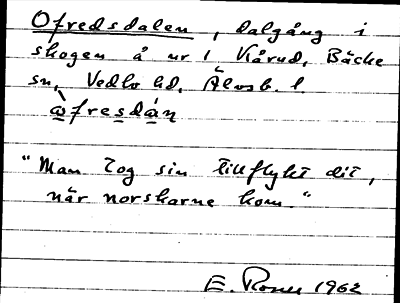 Ofredsdalen, dalgång i
skogen å nr 1 Kårud, Bäcke
sn, Vedbo hd, Älvsb. l.
òfresdán
"Man tog sin tillflykt dit,
när norskarne kom."
E. 1962